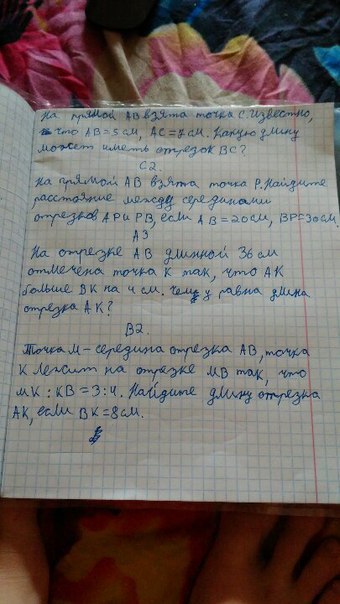 На прямой АВ взята точка С. Известно,
что АВ=5 см, АС=7 см. Какую длину
может иметь отрезок ВС?
С2
На прямой АВ взята точка Р. Найдите
расстояние между серединами
отрезков АР и РВ, если АВ=20см, ВР=30см.
А3
На отрезке АВ длинной 36 см
отмечена точка К так, что АК
больше ВК на 4 см. Чему равна длина
отрезка АК?
В2.
Точка М – середина отрезка АВ, точка
К лежит на отрезке МВ так, что
МК : КВ = 3:4. Найдите длину отрезка
АК, если ВК=8см.